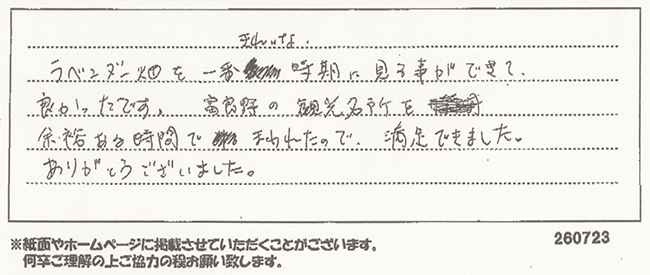 きれいな
ラベンダー畑を一番時期に見る事ができて、
良かったです。富良野の観光名所を
余裕ある時間でまわれたので、満足できました。
ありがとうございました。
※紙面やホームページに掲載させていただくことがございます。
何卒ご理解の上ご協力の程お願い致します。
260723